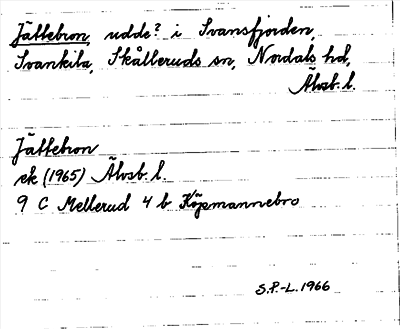 Jättebron, udde? i Svansfjorden,
Svankila, Skålleruds sn, Nordals hd,
Älvsb. l.
Jättebron
ek (1965) Älvsb. l.
9 C Mellerud 4 b Köpmannebro
S.P.-L. 1966